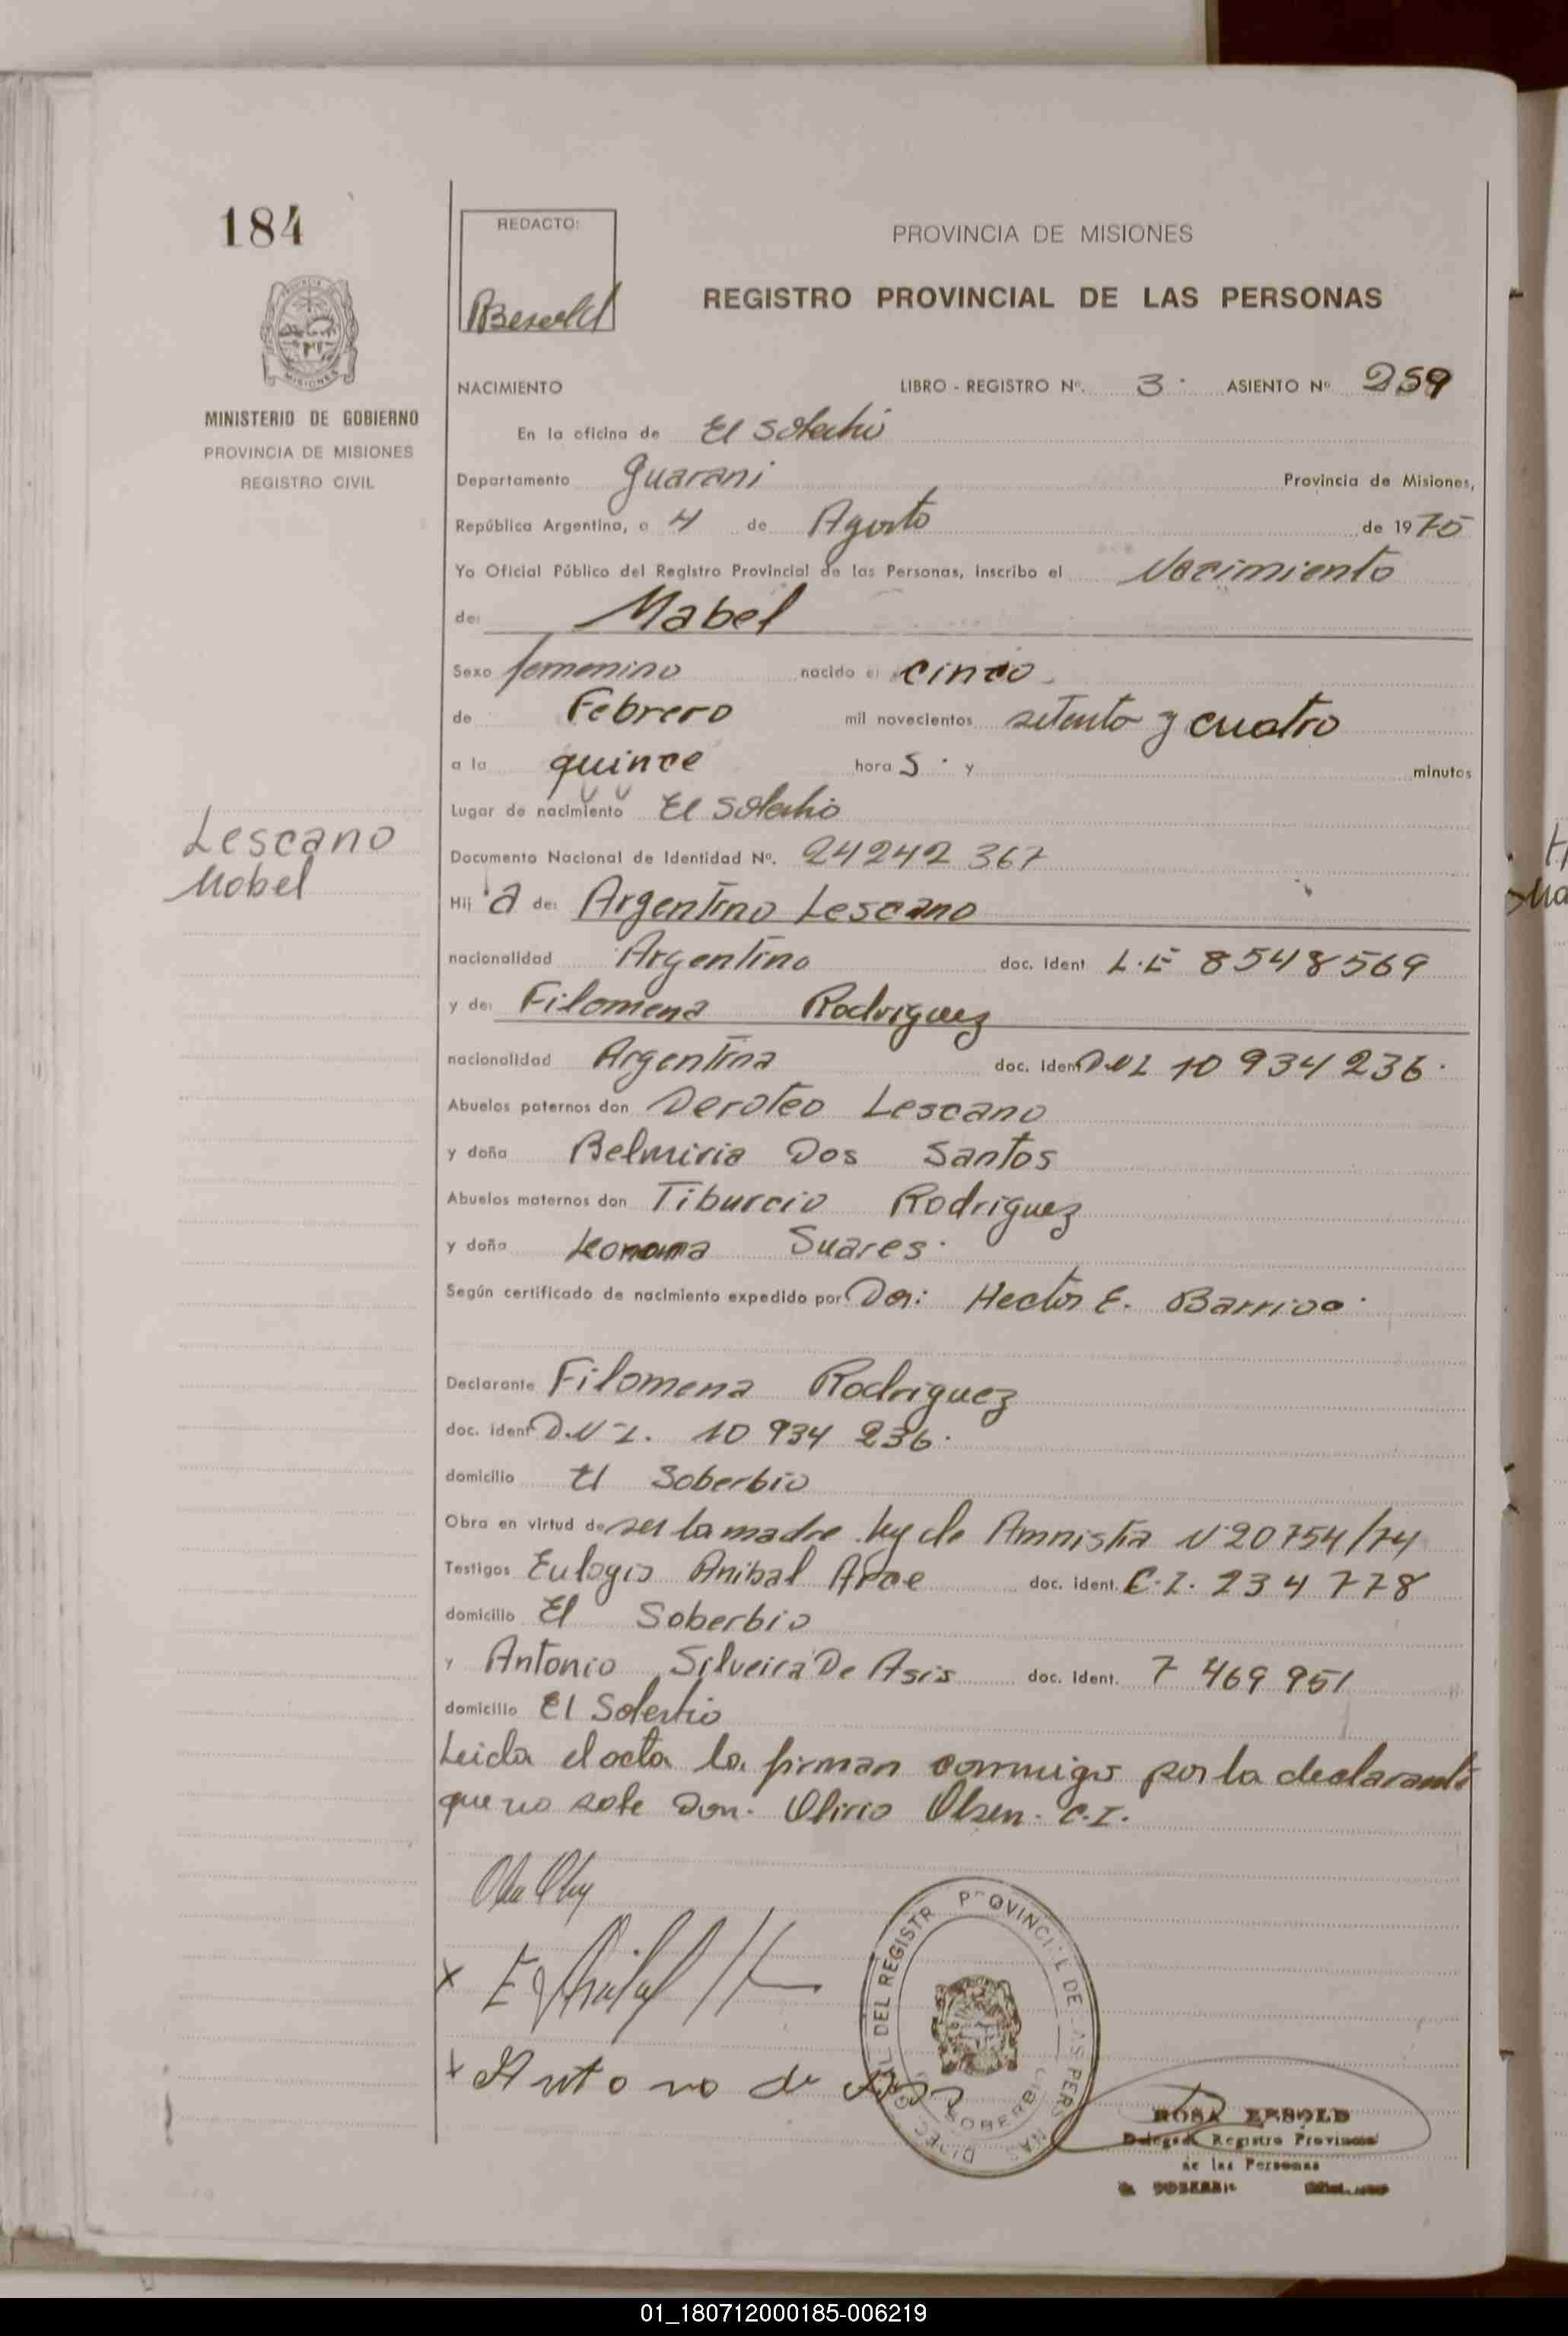 184
REDACTO:
PROVINCIA DE MISIONES
REGISTRO PROVINCIAL DE LAS PERSONAS
MISIONES
MINISTERIO DE GOBIERNO
PROVINCIA DE MISIONES
REGISTRO CIVIL
NACIMIENTO LIBRO - REGISTRO Nº. 3 · ASIENTO Nº 259
En la oficina de El Soberbio
Departamento Guarani Provincia de Misiones,
República Argentina, a 4 de Agosto de 1975
Yo Oficial Público del Registro Provincial de las Personas, inscribo el Nacimiento
de: Mabel
Sexo femenino nacido el cinco
de Febrero mil novecientos setenta y cuatro
a la quince hora s · y minutos
Lugar de nacimiento El Soberbio
Lescano
Mabel
Documento Nacional de Identidad Nº. 24242 367
Hij a de: Argentino Lescano
nacionalidad Argentino doc. ident L.E 8548569
y de: Filomena Rodriguez
nacionalidad Argentina doc. ident D.N.I. 10 934 236.
Abuelos paternos don Deroteo Lescano
y doña Belmiria Dos Santos
Abuelos maternos don Tiburcio Rodriguez
y doña Suares.
Según certificado de nacimiento expedido por Hector E.
Declarante Filomena Rodriguez
doc. ident D.N.I. 10 934 236.
domicilio El Soberbio
Obra en virtud de ser la madre. Ley de Amnistia N 20754/74
Testigos Eulogio Anibal Arce doc. ident. C.I. 234 778
domicilio El Soberbio
y Antonio Silveira De Asis doc. ident. 7 469 951
domicilio El Soberbio
Leida el acta la firman conmigo por la declarante
que no sabe Don. Olirio Olsen. C.I.
X
DIREC. GRAL. DEL REGISTR PROVINCIAL DE LAS PERSONAS
SOBERBIO
Antono de
ROSA BESOLD
Delegada Registro Provincial
de las Personas
01_180712000185-006219